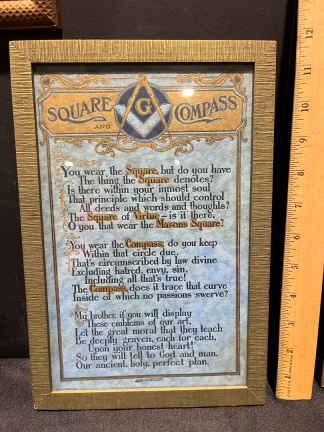 SQUARE AND COMPASS
G
You wear the Square, but do you have
The thing the Square denotes?
Is there within your inmost soul
That principle which should control
All deeds and words and thoughts?
The Square of Virtue – is it there,
O you that wear the Masons Square?
You wear the Compass; do you keep
Within that circle due,
That's circumscribed by law divine
Excluding hatred, envy, sin,
Including all that's true?
The Compass, does it trace that curve
Inside of which no passions swerve?
My brother, if you will display
These emblems of our art,
Let the great moral that they teach
Be deeply graven, each for each,
Upon your honest heart!
So they will tell to God and man,
Our ancient, holy, perfect plan.
12
11
10
9
8
7
6
5
4
3
2
1